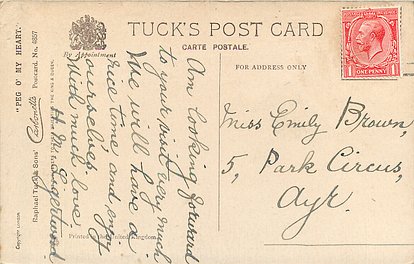 TUCK'S POST CARD
CARTE POSTALE.
By Appointment
FOR ADDRESS ONLY
"PEG O' MY HEART."
Carbonette Postcard. No. 4857
Raphael Tuck & Sons'
THE KING & QUEEN
Copyright LONDON
Am looking forward
to your visit very much
We will have a
nice time, and enjoy
ourselves.
with much love
H. M.
Printed in the United Kingdom.
ONE PENNY
Miss Emily Brown,
5, Park Circus,
Ayr.